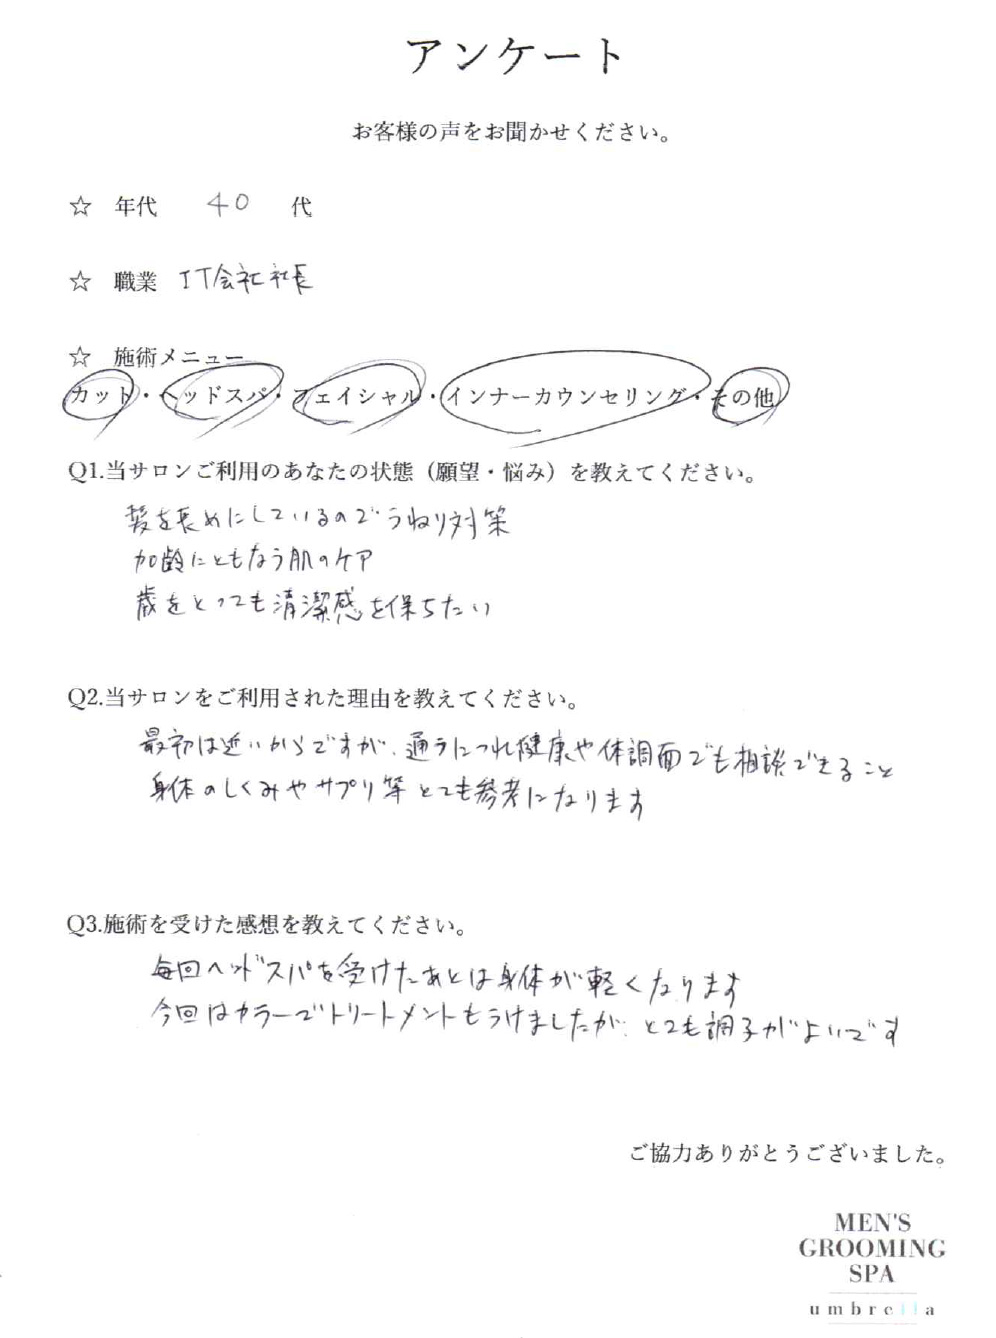 アンケート
お客様の声をお聞かせください。
☆ 年代 40 代
☆ 職業 IT会社社長
☆ 施術メニュー
カット・ヘッドスパ・フェイシャル・インナーカウンセリング・その他
Q1.当サロンご利用のあなたの状態（願望・悩み）を教えてください。
髪を長めにしているのでうねり対策
加齢にともなう肌のケア
歳をとっても清潔感を保ちたい
Q2.当サロンをご利用された理由を教えてください。
最初は近いからですが、通うにつれ健康や体調面でも相談できること
身体のしくみやサプリ等とても参考になります
Q3.施術を受けた感想を教えてください。
毎回ヘッドスパを受けたあとは身体が軽くなります
今回はカラーでトリートメントもうけましたが、とても調子がよいです
ご協力ありがとうございました。
MEN'S
GROOMING
SPA
umbrella